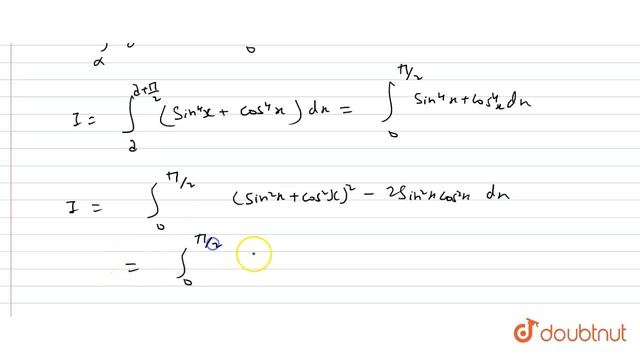 α 0 0
I = ∫_a^{a+π/2} (sin⁴x + cos⁴x) dx = ∫_0^{π/2} sin⁴x + cos⁴x dx
I = ∫_0^{π/2} (sin²x + cos²x)² − 2sin²x cos²x dx
= ∫_0^{π/2}
doubtnut